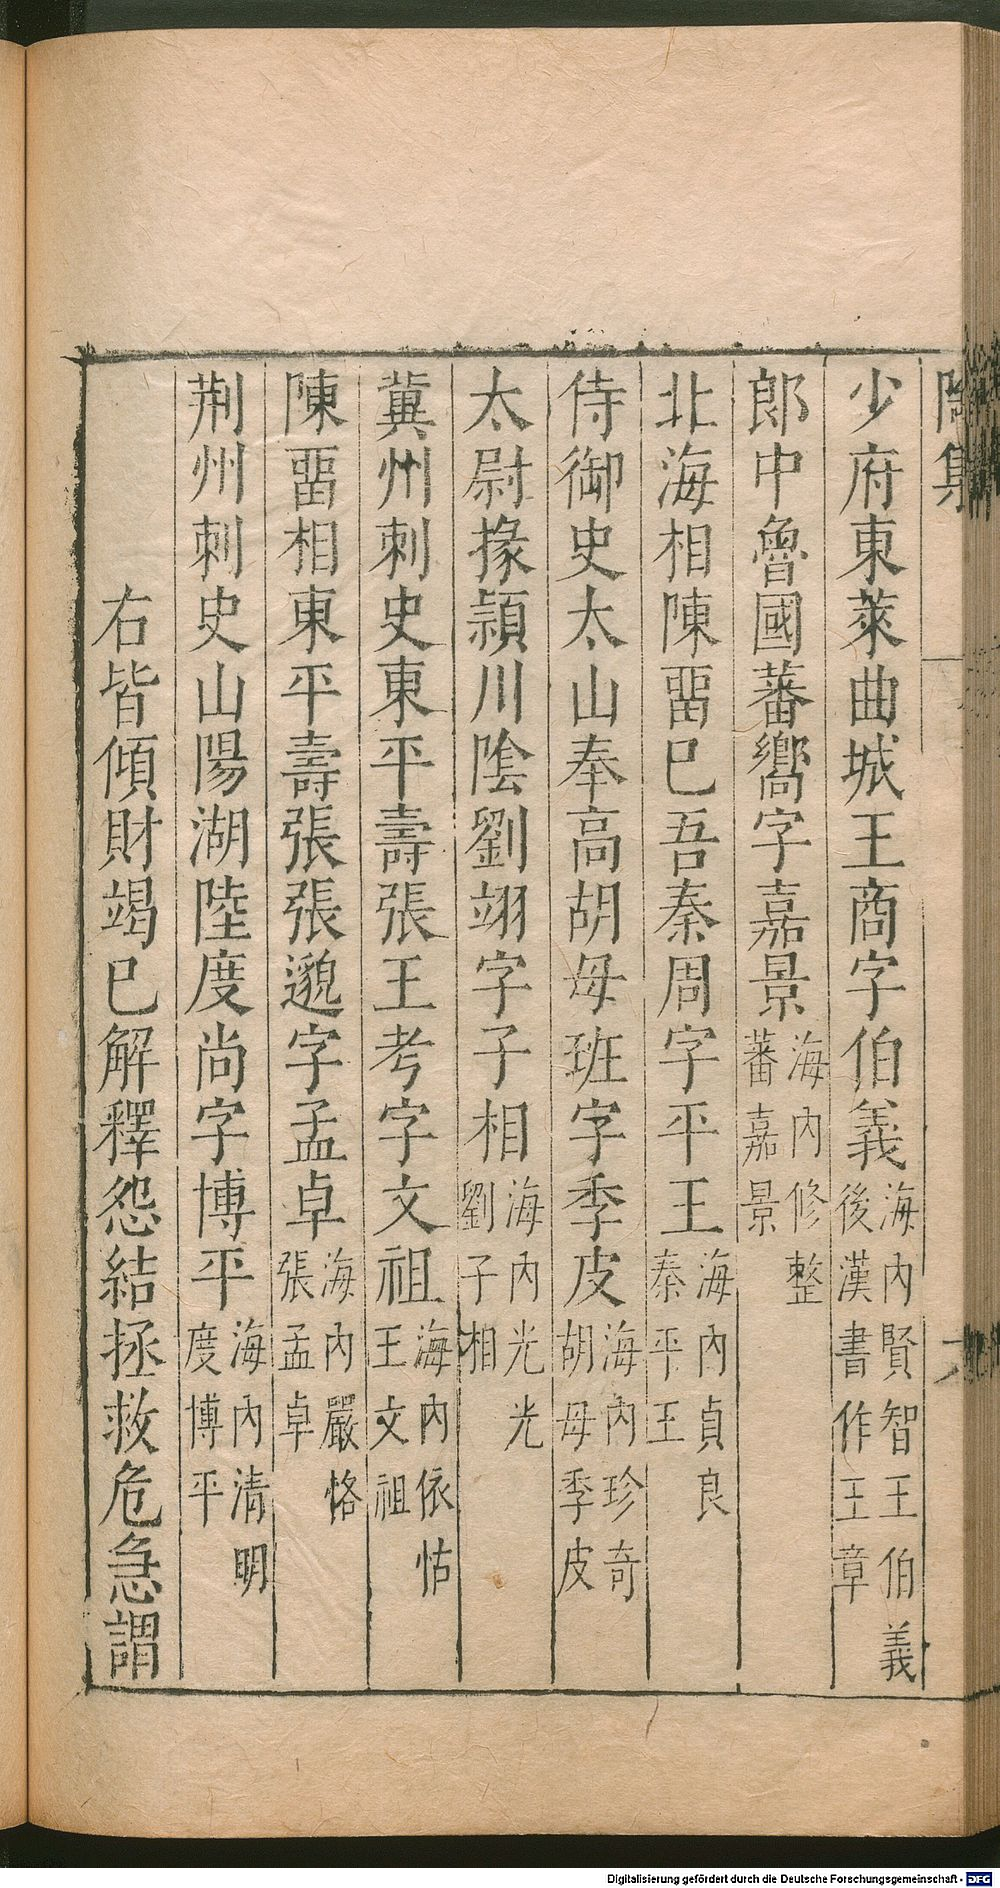 陶集
少府東萊曲城王商字伯義海內賢智王伯義後漢書作王章
郎中魯國蕃嚮字嘉景海內修整蕃嘉景
北海相陳畱巳吾秦周字平王海內貞良秦平王
侍御史太山奉高胡母班字季皮海內珍奇胡母季皮
太尉掾潁川陰劉翊字子相海內光光劉子相
冀州刺史東平壽張王考字文祖海內依怙王文祖
陳畱相東平壽張張邈字孟卓海內嚴恪張孟卓
荆州刺史山陽湖陸度尚字博平海內清明度博平
右皆傾財竭巳解釋怨結拯救危急謂
Digitalisierung gefördert durch die Deutsche Forschungsgemeinschaft - DFG